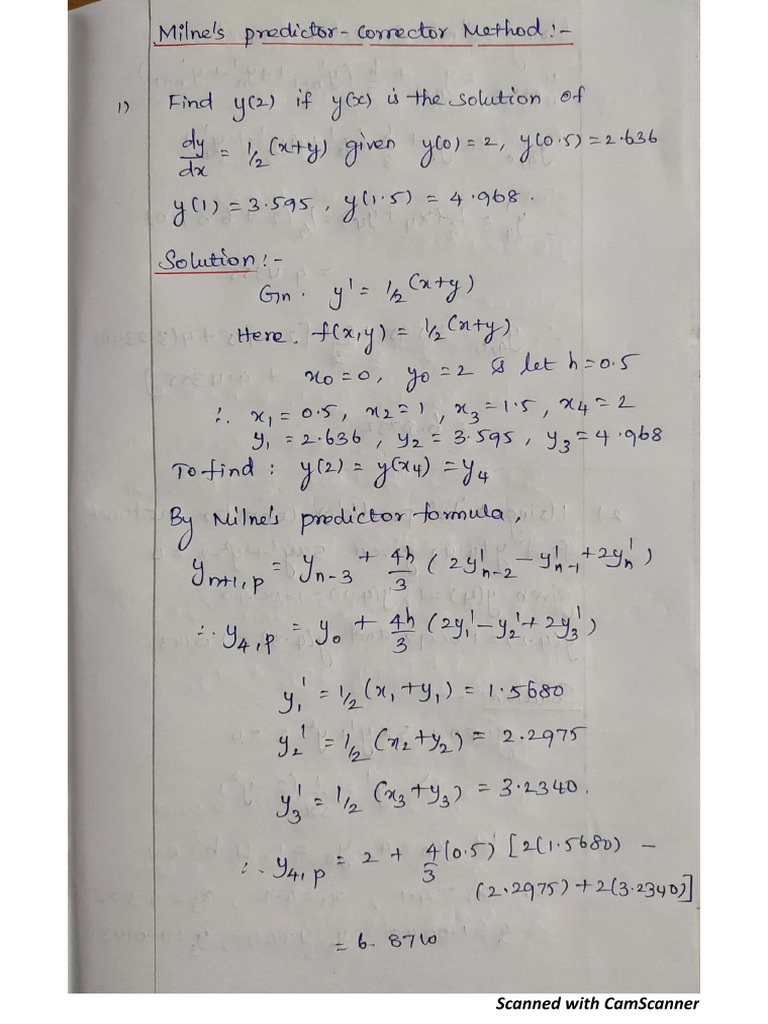 Milne's predictor-corrector Method:-
1) Find y(2) if y(x) is the solution of
dy/dx = 1/2 (x+y) given y(0) = 2, y(0.5) = 2.636
y(1) = 3.595, y(1.5) = 4.968.
Solution:-
Gn. y' = 1/2 (x+y)
Here. f(x,y) = 1/2 (x+y)
x₀ = 0, y₀ = 2 & let h = 0.5
∴ x₁ = 0.5, x₂ = 1, x₃ = 1.5, x₄ = 2
y₁ = 2.636, y₂ = 3.595, y₃ = 4.968
To find: y(2) = y(x₄) = y₄
By Milne's predictor formula,
yₙ₊₁,p = yₙ₋₃ + 4h/3 (2y'ₙ₋₂ - y'ₙ₋₁ + 2y'ₙ)
∴ y₄,p = y₀ + 4h/3 (2y₁' - y₂' + 2y₃')
y₁' = 1/2 (x₁ + y₁) = 1.5680
y₂' = 1/2 (x₂ + y₂) = 2.2975
y₃' = 1/2 (x₃ + y₃) = 3.2340.
∴ y₄,p = 2 + 4(0.5)/3 [2(1.5680) -
(2.2975) + 2(3.2340)]
= 6.8710
Scanned with CamScanner